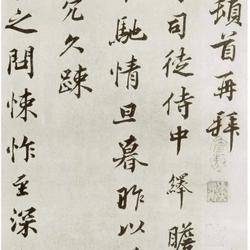 頓首再拜
司徒侍中繹瞻
馳情旦暮昨以
冗久踈
之閒悚怍至深